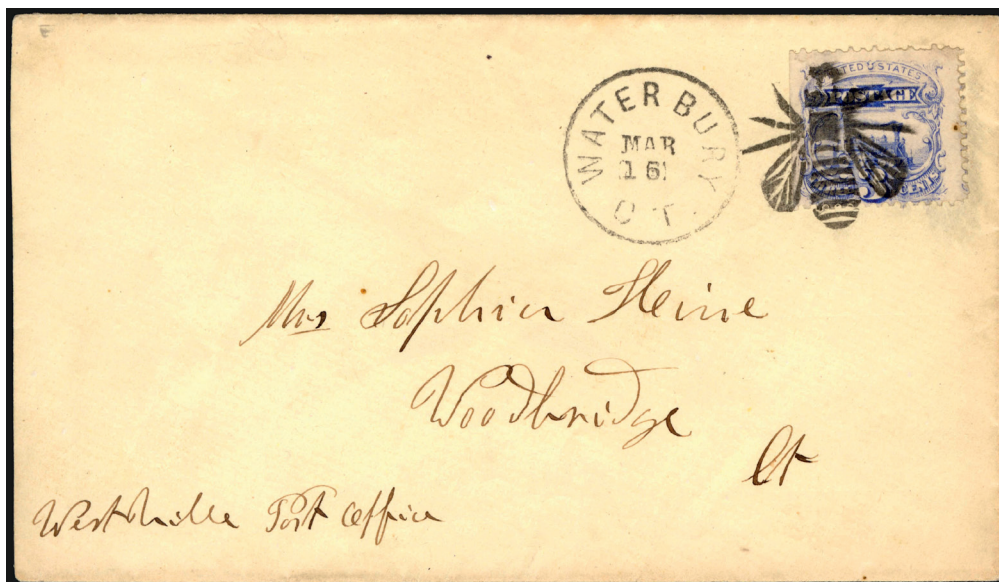 WATERBURY
MAR
16
CT.
UNITED STATES
POSTAGE
3 CENTS
Mrs Sophia Heine
Woodbridge
Ct
Westville Post Office